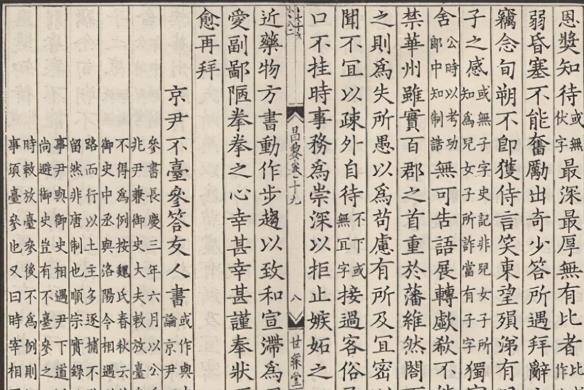 恩奬知待或無伏字最深最厚無有比者
弱昏塞不能奮勵出奇少答所遇拜辭
竊念旬朔不卽獲侍言笑東望殞涕有
子之感或無子字史記非兒女子所知爲兒女子所詐當有子字獨
舍公時以考功郞中知制誥無可告語展轉歔欷不
禁華州雖實百郡之首重於藩維然閤
之則爲失所愚以爲苟慮有所及宜
聞不宜以疎外自待不下或無宜字接過客俗
口不挂時事務爲崇深以拒止嫉妬之
昌黎卷十九
八
世綵堂
近藥物方書動作步趨以致和宣滯爲
愛副鄙陋拳拳之心幸甚幸甚謹奉狀
愈再拜
京尹不臺參答友人書或作與論京尹
參書長慶三年六月以公
兆尹兼御史大夫敕放臺
不得爲例按魏氏春秋云
御史中丞與洛陽令相遇
路而行以土主多逐捕不
留然非唐制也順宗實錄
事尹與御史相遇尹下道
尚避御史豈有不臺參之
時敕放臺參後不爲例則
事須臺參也又曰時宰相